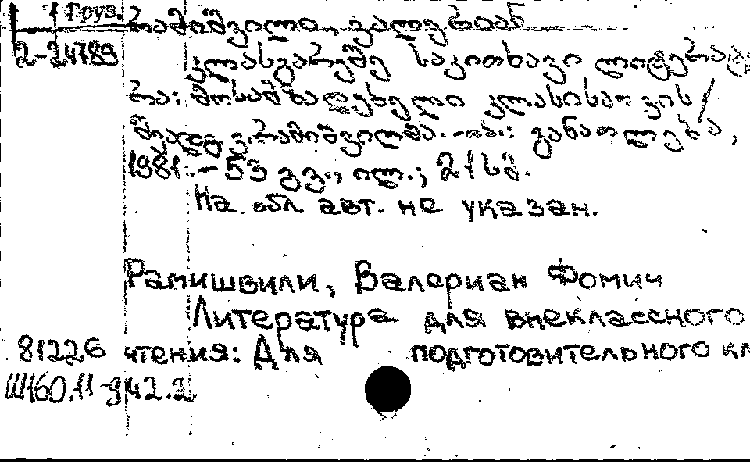 1 Груз.
2-24789
რამიშვილი, ვალერიან
კლასგარეშე საკითხავი ლიტერატუ
რა: მოსამზადებელი კლასისათვის /
შეადგ. ვ. რამიშვილმა. - თბ.: განათლება,
1981. - 53 გვ., ილ.; 21 სმ.
На обл. авт. не указан.
Рамишвили, Валериан Фомич
Литература для внеклассного
81226 чтения: Для подготовительного кл
Ш160.11-942.2